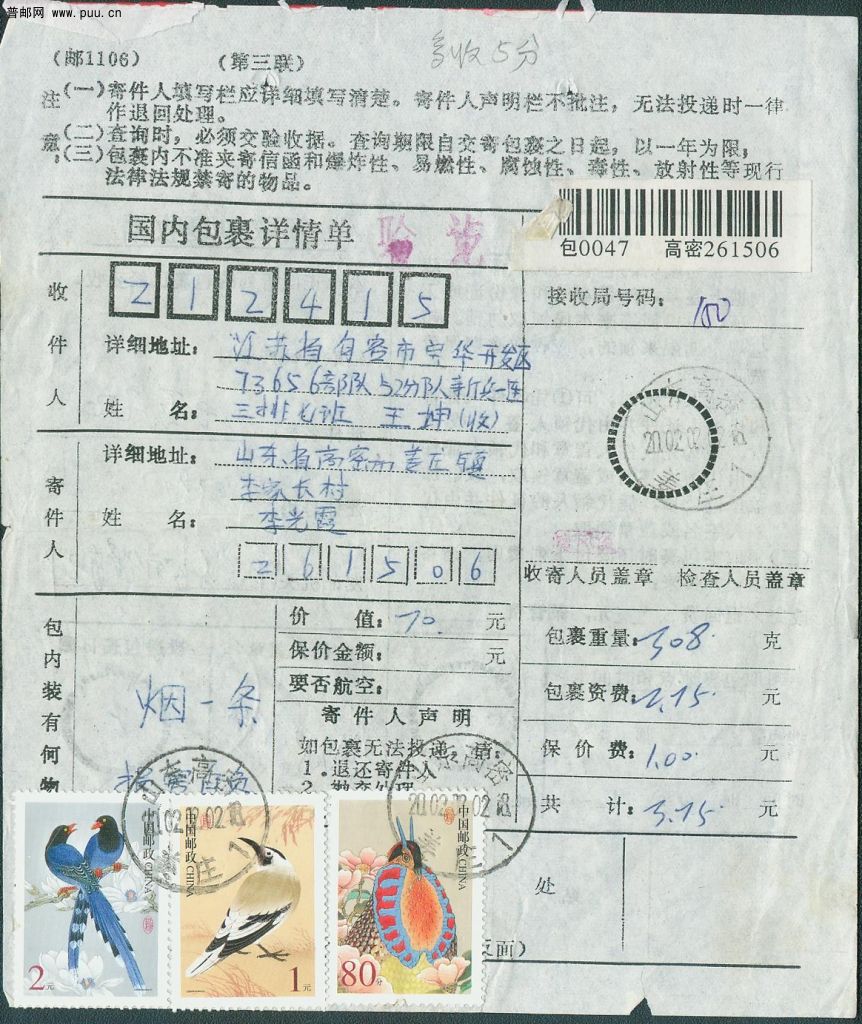 普邮网 www.puu.cn
多收5分
(邮1106) (第三联)
注意
(一)寄件人填写栏应详细填写清楚。寄件人声明栏不批注，无法投递时一律
作退回处理。
(二)查询时，必须交验收据。查询期限自交寄包裹之日起，以一年为限；
(三)包裹内不准夹寄信函和爆炸性、易燃性、腐蚀性、毒性、放射性等现行
法律法规禁寄的物品。
国内包裹详情单
包0047 高密261506
收件人
212415
接收局号码：150
详细地址：江苏省句容市宝华开发区
73656部队52分队新兵一连
姓名：三排七班 王坤(收)
寄件人
详细地址：山东省高密市姜庄镇
李家长村
姓名：李光霞
261506
山东高密
2002.02.02.18
姜庄 1
收寄人员盖章 检查人员盖章
包内装有何物
烟一条
价值：70. 元
保价金额： 元
要否航空：
寄件人声明
如包裹无法投递，请：
1.退还寄件人
2.抛弃处理
包裹重量：308 克
包裹资费：2.75 元
保价费：1.00 元
共计：3.75 元
处
反面)
山东高密
2002.02.02.18
姜庄 1
山东高密
2002.02.02.18
姜庄 1
中国邮政 CHINA
2元
中国邮政 CHINA
1元
中国邮政 CHINA
80分